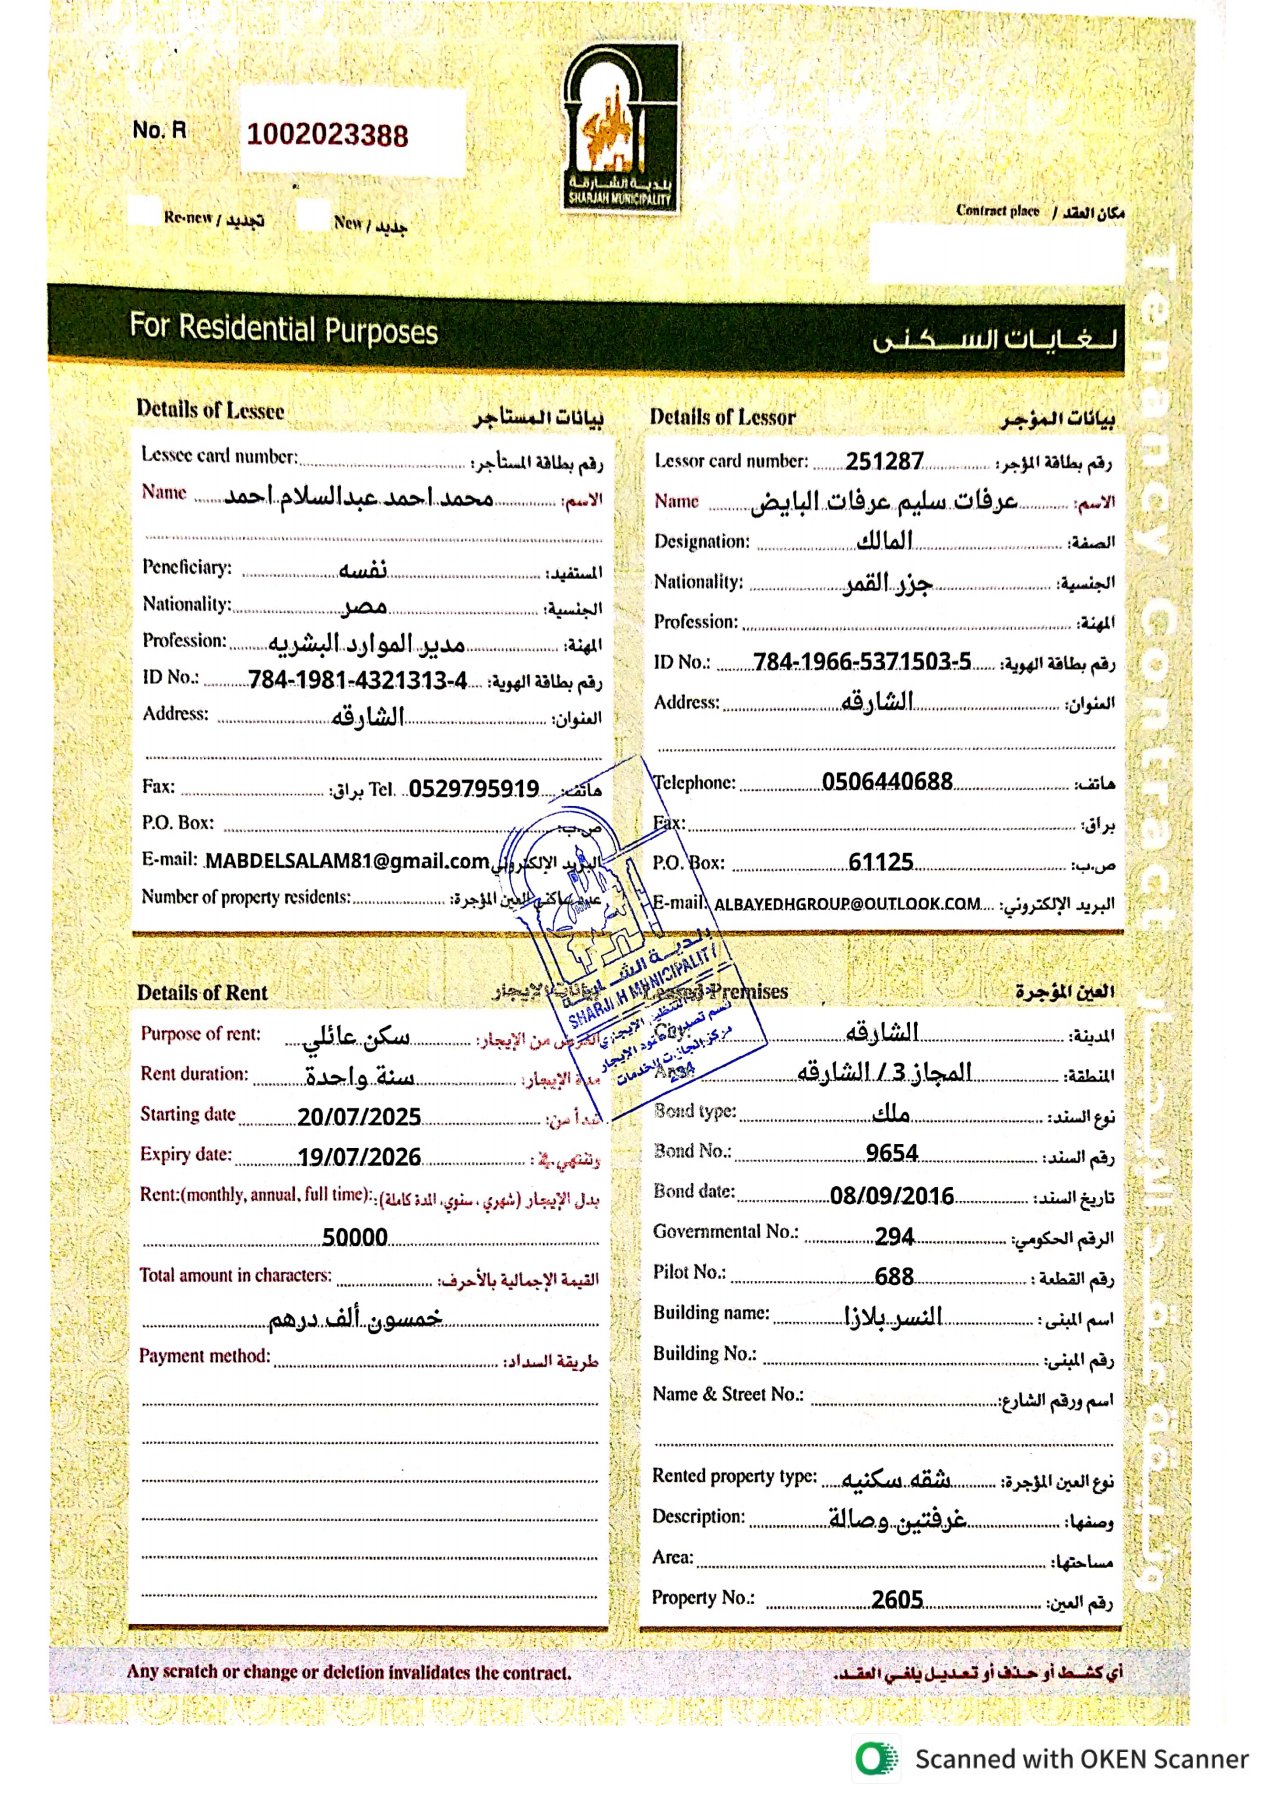 No. R 1002023388
بلدية الشارقة
SHARJAH MUNICIPALITY
Re-new / تجديد New / جديد
Contract place / مكان العقد
For Residential Purposes لغايات السكنى
Tenancy Contract
Details of Lessee بيانات المستأجر
Lessee card number: رقم بطاقة المستأجر:
Name محمد احمد عبدالسلام احمد الاسم:
Peneficiary: نفسه المستفيد:
Nationality: مصر الجنسية:
Profession: مدير الموارد البشريه المهنة:
ID No.: 784-1981-4321313-4 رقم بطاقة الهوية:
Address: الشارقه العنوان:
Fax: براق: Tel. 0529795919 هاتف:
P.O. Box: ص.ب:
E-mail: MABDELSALAM81@gmail.com البريد الإلكتروني
Number of property residents: عدد ساكني العين المؤجرة:
Details of Lessor بيانات المؤجر
Lessor card number: 251287 رقم بطاقة المؤجر:
Name عرفات سليم عرفات البايض الاسم:
Designation: المالك الصفة:
Nationality: جزر القمر الجنسية:
Profession: المهنة:
ID No.: 784-1966-5371503-5 رقم بطاقة الهوية:
Address: الشارقه العنوان:
Telephone: 0506440688 هاتف:
Fax: براق:
P.O. Box: 61125 ص.ب:
E-mail: ALBAYEDHGROUP@OUTLOOK.COM البريد الإلكتروني:
بلدية الشارقة
SHARJAH MUNICIPALITY
التنظيم الإيجاري
قسم تصديق عقود الإيجار
234
Details of Rent بيانات الإيجار
Purpose of rent: سكن عائلي الغرض من الإيجار:
Rent duration: سنة واحدة مدة الإيجار:
Starting date 20/07/2025 تبدأ من:
Expiry date: 19/07/2026 وتنتهي في:
Rent:(monthly, annual, full time): بدل الإيجار (شهري، سنوي، المدة كاملة):
50000
Total amount in characters: القيمة الإجمالية بالأحرف:
خمسون ألف درهم
Payment method: طريقة السداد:
Leased Premises العين المؤجرة
City: الشارقه المدينة:
Area: المجاز 3 / الشارقه المنطقة:
Bond type: ملك نوع السند:
Bond No.: 9654 رقم السند:
Bond date: 08/09/2016 تاريخ السند:
Governmental No.: 294 الرقم الحكومي:
Pilot No.: 688 رقم القطعة:
Building name: النسر بلازا اسم المبنى:
Building No.: رقم المبنى:
Name & Street No.: اسم ورقم الشارع:
Rented property type: شقه سكنيه نوع العين المؤجرة:
Description: غرفتين وصالة وصفها:
Area: مساحتها:
Property No.: 2605 رقم العين:
Any scratch or change or deletion invalidates the contract. أي كشط أو حذف أو تعديل يلغي العقد.
Scanned with OKEN Scanner